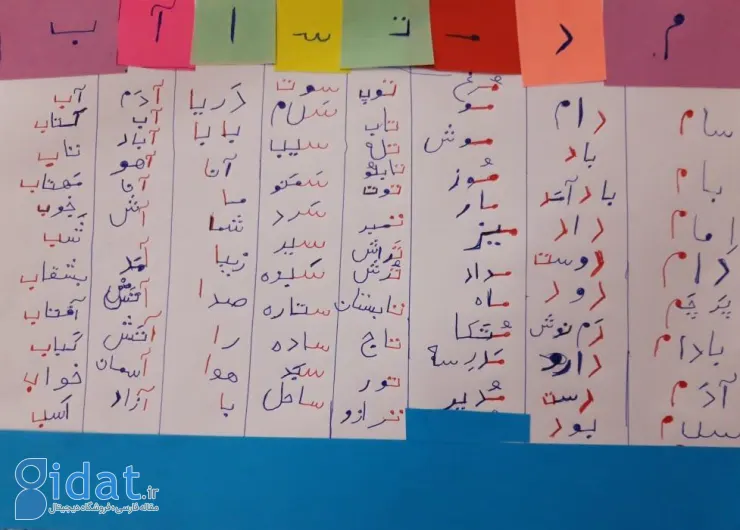 م
سام
بام
امام
دام
پرچم
بادام
آدم
سلام
د
دام
باد
باد آمد
داد
دوست
رود
دَم نوش
دارو
دست
بود
مـ
مُرغ
مو
موش
مُوز
مار
میز
مداد
ماه
مُتکا
مَدرسه
مُدیر
تـ
توپ
تاب
تابلو
توت
تمبر
تَراش
تُرش
تابستان
تاج
تور
ترازو
سـ
سوت
سَلام
سیب
سَمنو
سَرد
سیر
ستاره
ساده
سَبَد
ساحل
ا
دَریا
بابا
آقا
ما
شُما
زیبا
صدا
را
هوا
با
آ
آدَم
آب
آباد
آهو
آقا
آش
آمَد
آتش
آتَش
آسمان
آزاد
ب
آب
کتاب
تاب
مَهتاب
خوب
شَب
بشقاب
آفتاب
کَباب
خواب
اَسب
gidat.ir
مقاله فارسی؛ فروشگاه دیجیتال